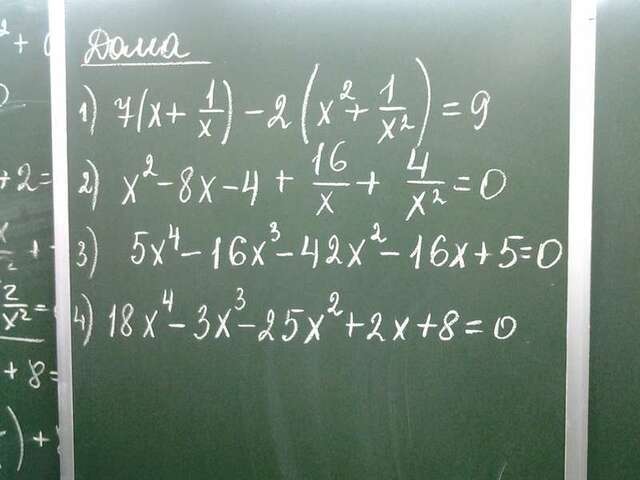 Дома
1) 7(x + 1/x) - 2(x² + 1/x²) = 9
2) x² - 8x - 4 + 16/x + 4/x² = 0
3) 5x⁴ - 16x³ - 42x² - 16x + 5 = 0
4) 18x⁴ - 3x³ - 25x² + 2x + 8 = 0
+ 2 =
2/x² =
+ 8 =